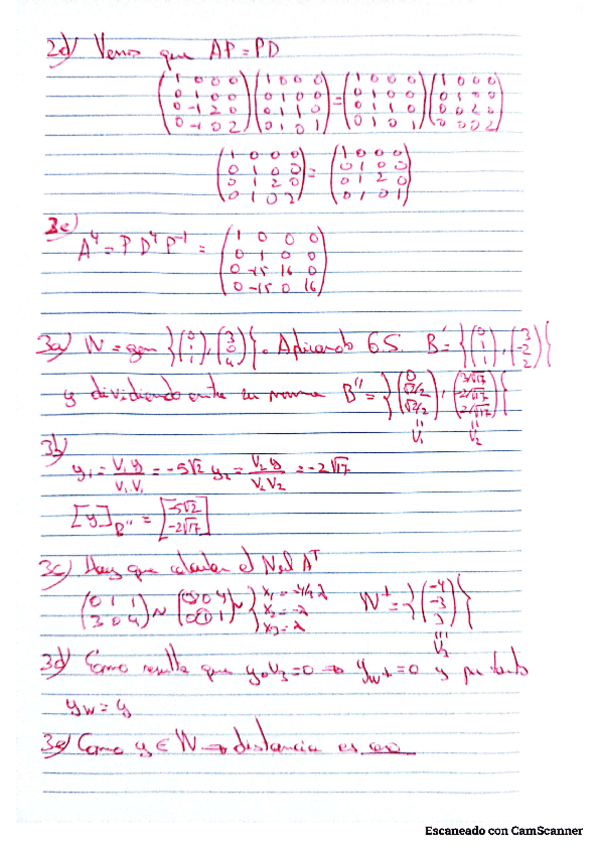 2d) Vemos que AP = PD
(1 0 0 0 / 0 1 0 0 / 0 -1 2 0 / 0 -1 0 2) (1 0 0 0 / 0 1 0 0 / 0 1 1 0 / 0 1 0 1) = (1 0 0 0 / 0 1 0 0 / 0 1 1 0 / 0 1 0 1) (1 0 0 0 / 0 1 0 0 / 0 0 2 0 / 0 0 0 2)
(1 0 0 0 / 0 1 0 0 / 0 1 2 0 / 0 1 0 2) = (1 0 0 0 / 0 1 0 0 / 0 1 2 0 / 0 1 0 1)
2e)
A⁴ = P D⁴ P⁻¹ = (1 0 0 0 / 0 1 0 0 / 0 -15 16 0 / 0 -15 0 16)
3a) W = gen {(0 1 1), (3 0 4)}. Aplicando G.S. B' = {(0 1 1), (3 -2 2)}
y dividiendo entre su norma B'' = {(0 √2/2 √2/2), (3/√17 -2/√17 2/√17)}
= v₁ = v₂
3b)
y₁ = v₁y / v₁v₁ = -5√2 y₂ = v₂y / v₂v₂ = -2√17
[y]B'' = [-5√2 / -2√17]
3c) Hay que calcular el Nul Aᵀ
(0 1 1 / 3 0 4) ~ (3 0 4 / 0 1 1) ~ } x₁ = -4/3 λ x₂ = -λ x₃ = λ W⊥ = {(-4 -3 3)}
= v₃
3d) Como resulta que y·v₃ = 0 ⇒ yw⊥ = 0 y por tanto
yw = y
3e) Como y ∈ W ⇒ distancia es cero
Escaneado con CamScanner